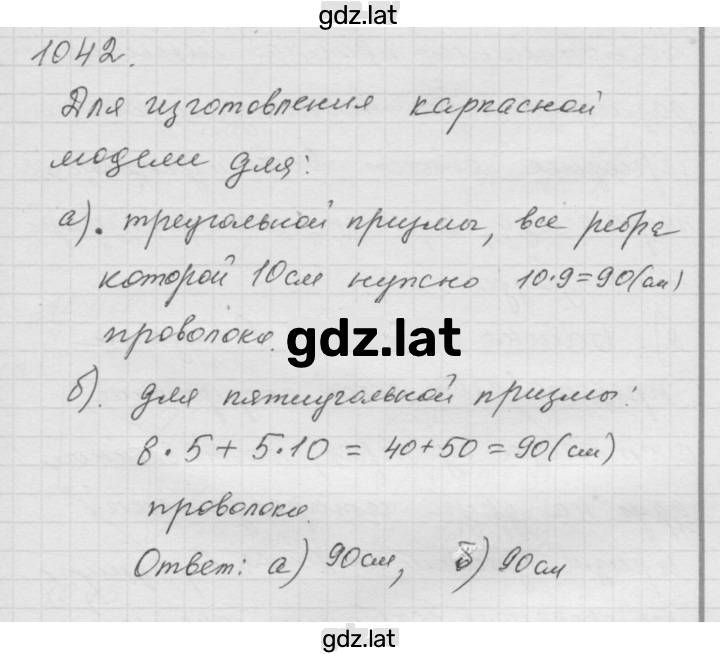 gdz.lat
1042.
Для изготовления каркасной
модели для:
а). треугольной призмы, все ребра
которой 10см нужно 10·9=90(см)
проволоки.
gdz.lat
б). для пятиугольной призмы:
8·5+5·10=40+50=90(см)
проволоки.
Ответ: а) 90см, б) 90см
gdz.lat